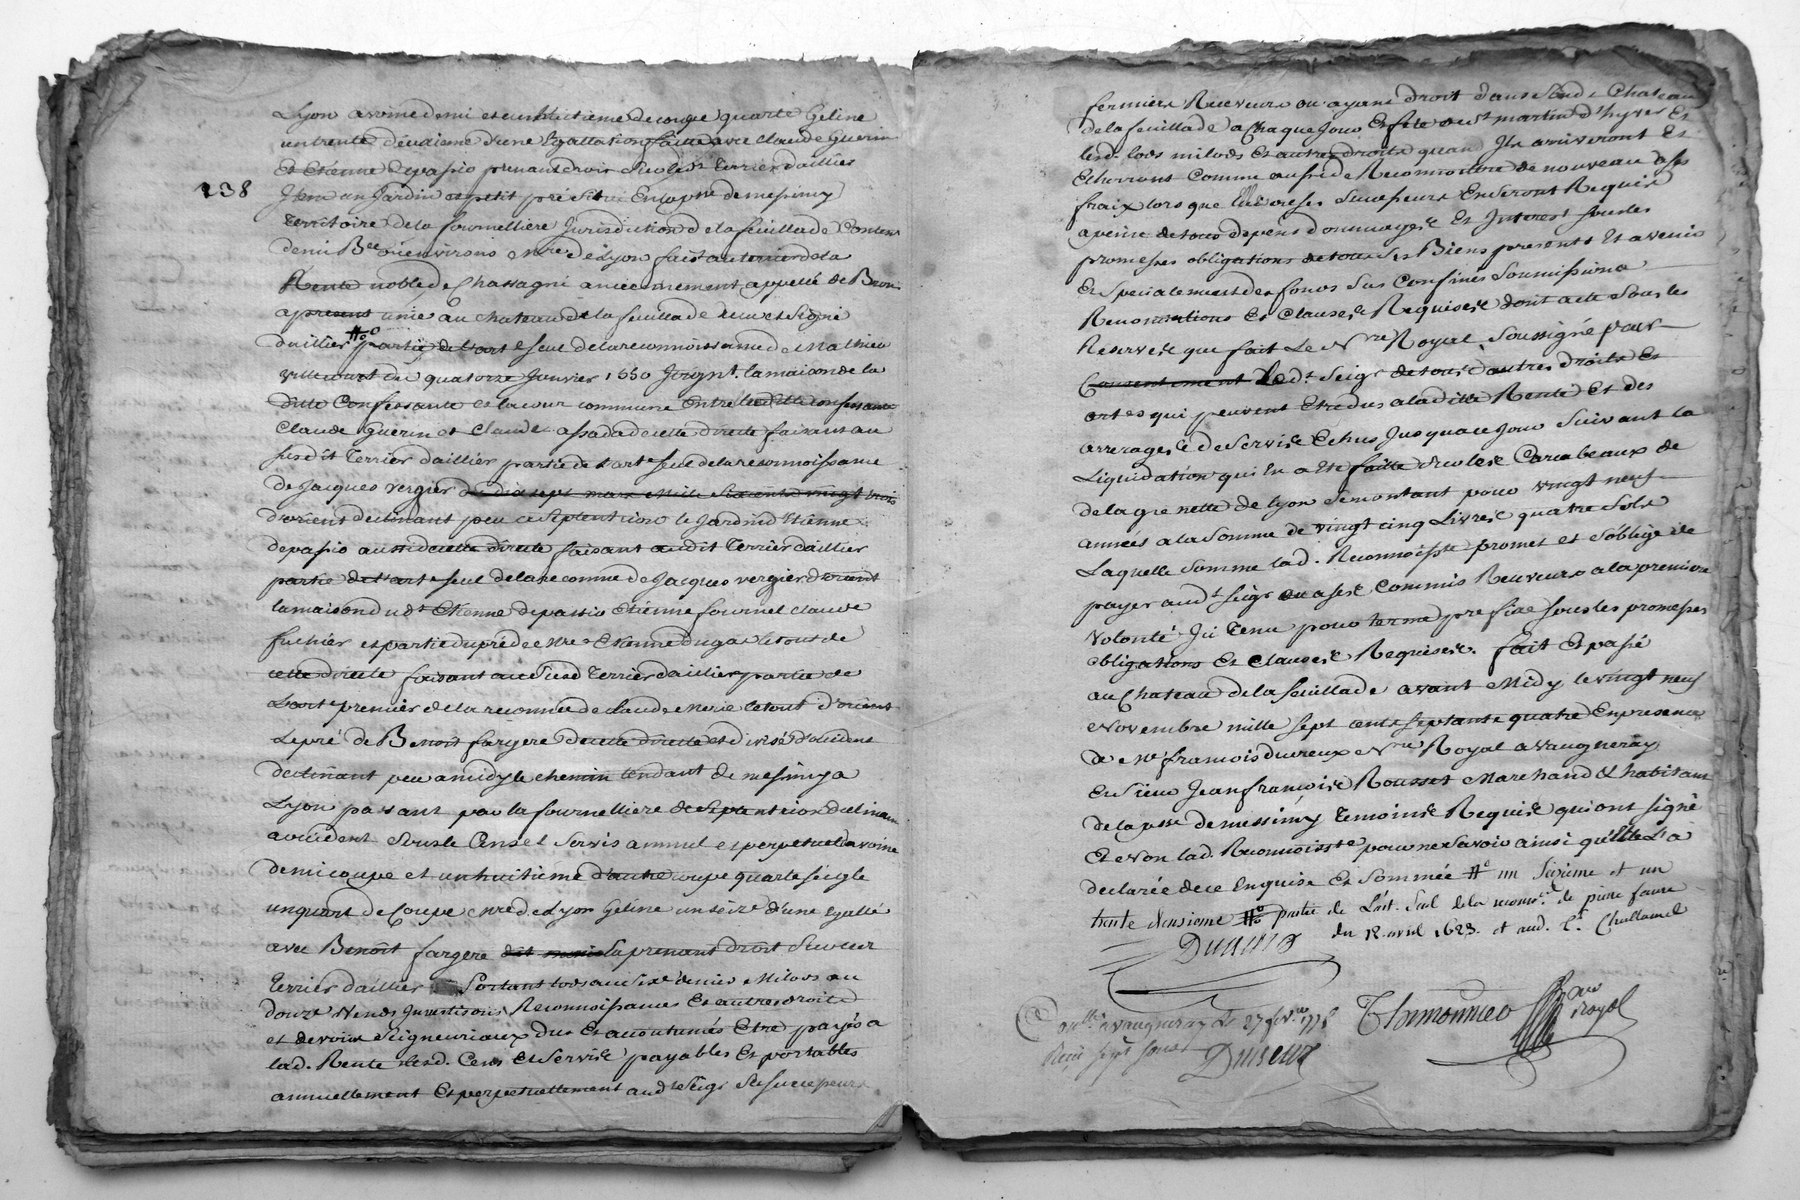 Lyon avoine demi et un huitieme de coupe quarte Geline
un trente deuxieme d'une Egallation faitte avec Claude Guerin
Et Etienne depassio prenant droit sur led. Terrier daillier
138
Item un Jardin et petit pré Situé En la psse de messimy
Territoire de la fournelliere Jurisdiction de la feuillade Conten
demi Bée ou environs me de Lyon fait au terrier de la
Rente noble de Chassagni anciennement appellé de Bron
apresent unie au Chateau de la feuillade Receu et Signé
daillier # partie de l'art e seul de la reconnoissance de Mathieu
Villecourt du quatorze Janvier 1650 Joignt. la maison de la
ditte Confessante et la cour commune Entre laditte confessante
Claude Guerin et Claude assada de cette directe faisant au
susdit Terrier daillier partie de l'art e seul de la reconnoissance
de Jacques vergier du dix sept mars mille six cents vingt trois
d'orient declinant peu a septentrion le Jardin d'Etienne
depassio aussi de cette directe faisant audit Terrier daillier
partie de l'art e seul de la reconnce de Jacques vergier d'orient
la maison dudt Etienne depassio Etienne fournel Claude
fuchier et partie du pré de me Etienne dugas le tout de
cette directe faisant au susd Terrier daillier partie de
L'art e premier de la reconnce de Claude merie le tout d'orient
Le pré de Benoit fargere de cette directe et divisé d'occident
declinant peu a midy le chemin tendant de messimy a
Lyon passant par la fournelliere de septentrion declinant
a occident Sous le Cens et Servis annuel et perpetuel avoine
demi coupe et un huitieme d'autre coupe quarte seigle
un quart de Coupe me de Lyon Geline un seize d'une egallé
avec Benoit fargere prenant droit Sur led
Terrier daillier Portant lods au Sixe denier Milods au
douze Vends Investisons Reconnoissances Et autres droits
et devoirs Seigneuriaux Dus Et accoutumés Etre payés a
lad. Rente Lesd. Cens et Servise payables Et portables
annuellement Et perpetuellement aud Seigr Ses successeurs
fermiers Receveurs ou ayans droit dans Sond Chateau
de la feuillade a Chaque Jour Et fete de St martin d'hyver Et
lesd. lods milods Et autres droits quand Ils arriveront Et
Echerront Comme aussi de Reconnoitre de nouveau a ses
fraix lorsque Elle ou ses Successeurs En Seront Requis
a peine de tous depens dommages Et Interest sous les
promesses obligations de tous Ses Biens presents Et avenir
Et Specialement des fonds Sus Confinés Soumissions
Renonciations Et Clauses Requises dont acte Sous les
Reserves que fait Le Nre Royal Soussigné pour
Consentement Ledt Seigr de tous d'autres droits Et
art es qui peuvent Etre dus a laditte Rente Et des
arrerages de Servis Echus Jusqua ce Jour Suivant la
Liquidation qui En a Eté faitte Sur les Carcabeaux de
de la grenette de Lyon Se montant pour vingt neuf
années a la Somme de vingt cinq Livres quatre Sols
Laquelle Somme lad. Reconnoisste promet et s'oblige de
payer audt Seigr ou a ses Commis Receveurs a la premiere
volonté Ici Tenu pour terme prefixe sous les promesses
obligations Et Clauses Requises. fait Et passé
au Chateau de la feuillade avant Midy le vingt neuf
Novembre mille sept cents septante quatre En presence
de Me francois dureux Nre Royal a Vaugneray
Et Sieur Jean françois Rousset Marchand & habitant
de la psse de messimy Temoins Requis qui ont signé
Et Non lad. Reconnoisste pour ne Savoir ainsi qu'Elle L'a
declarée de ce Enquise Et Sommée # un Sixieme et un
trente deuxieme # partie de L'art. Seul de la reconn. de piere faure
du 12. avril 1623. et aud. Tr. Chullamel
Dureux
Controllé a Vaugneray Le 27 fev. 1775
Recu sept sous
Dureux
Thimonnier
Nre
royal